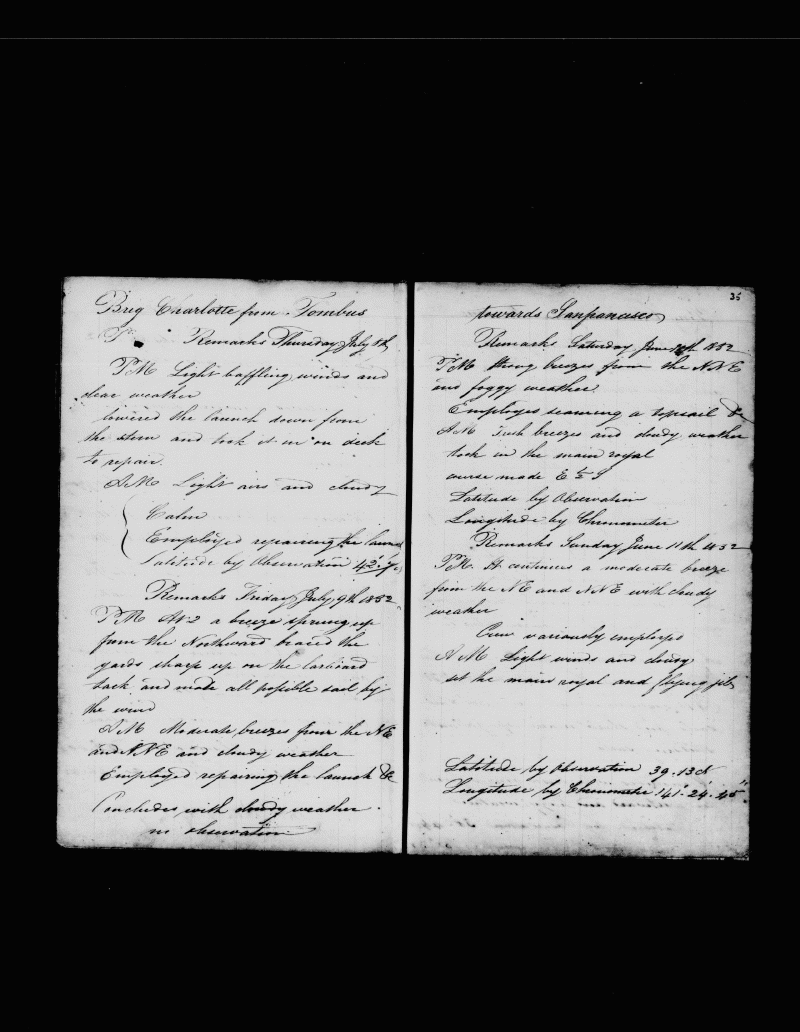 Brig Charlotte from Tombus
Remarks Thursday July 8th
PM Light baffling winds and
clear weather
lowered the launch down from
the stern and took it in on deck
to repair.
AM Light airs and cloudy
Calm
Employed repairing the launch
Latitude by Observation 42°.7
Remarks Friday July 9th 1852
PM At 2 a breeze sprung up
from the Northward braced the
yards sharp up on the larboard
tack and made all possible sail by
the wind
AM Moderate breezes from the NE
and NNE and cloudy weather
Employed repairing the launch &c
Concludes with cloudy weather.
no observation
35
towards Sanfrancisco
Remarks Saturday June 10th 1852
PM strong breezes from the NNE
and foggy weather.
Employes seaming a topsail &c
AM Fresh breezes and cloudy weather
took in the main royal
course made E ½ S
Latitude by Observation
Longitude by Chronometer
Remarks Sunday June 11th 1852
PM. It continues a moderate breeze
from the NE and NNE with cloudy
weather
Crew variously employes
AM Light winds and cloudy
set the main royal and flying jib
Latitude by Observation 39.13
Longitude by Chronometer 141°.24'.45"